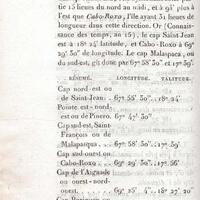 tie 15 lieues du nord au midi, et à 9½ plus à
l'est que Cabo-Roxo, l'île ayant 31 lieues de
longueur dans cette direction. Or (Connais-
sance des temps, an 15), le cap Saint Jean
est à 18° 24' latitude, et Cabo-Roxo à 69°
29' 50" de longitude. Le cap Malaqueca, ou
du sud-est, gît donc par 67° 58' 50" et 17° 59'.
RÉSUMÉ. LONGITUDE. LATITUDE.
Cap nord-est ou
de Saint-Jean. 67° 58' 50". 18° 24'
Pointe est-nord-
est ou de Pinero. 67° 57' 50".
Cap sud-est, Saint
François ou de
Malapasqua. . . 67° 58' 50". 17° 59'
Cap sud-ouest ou
Cabo-Roxo. . . 69° 29' 50". 17° 56'
Cap de l'Aiguade
ou ouest - nord-
ouest.